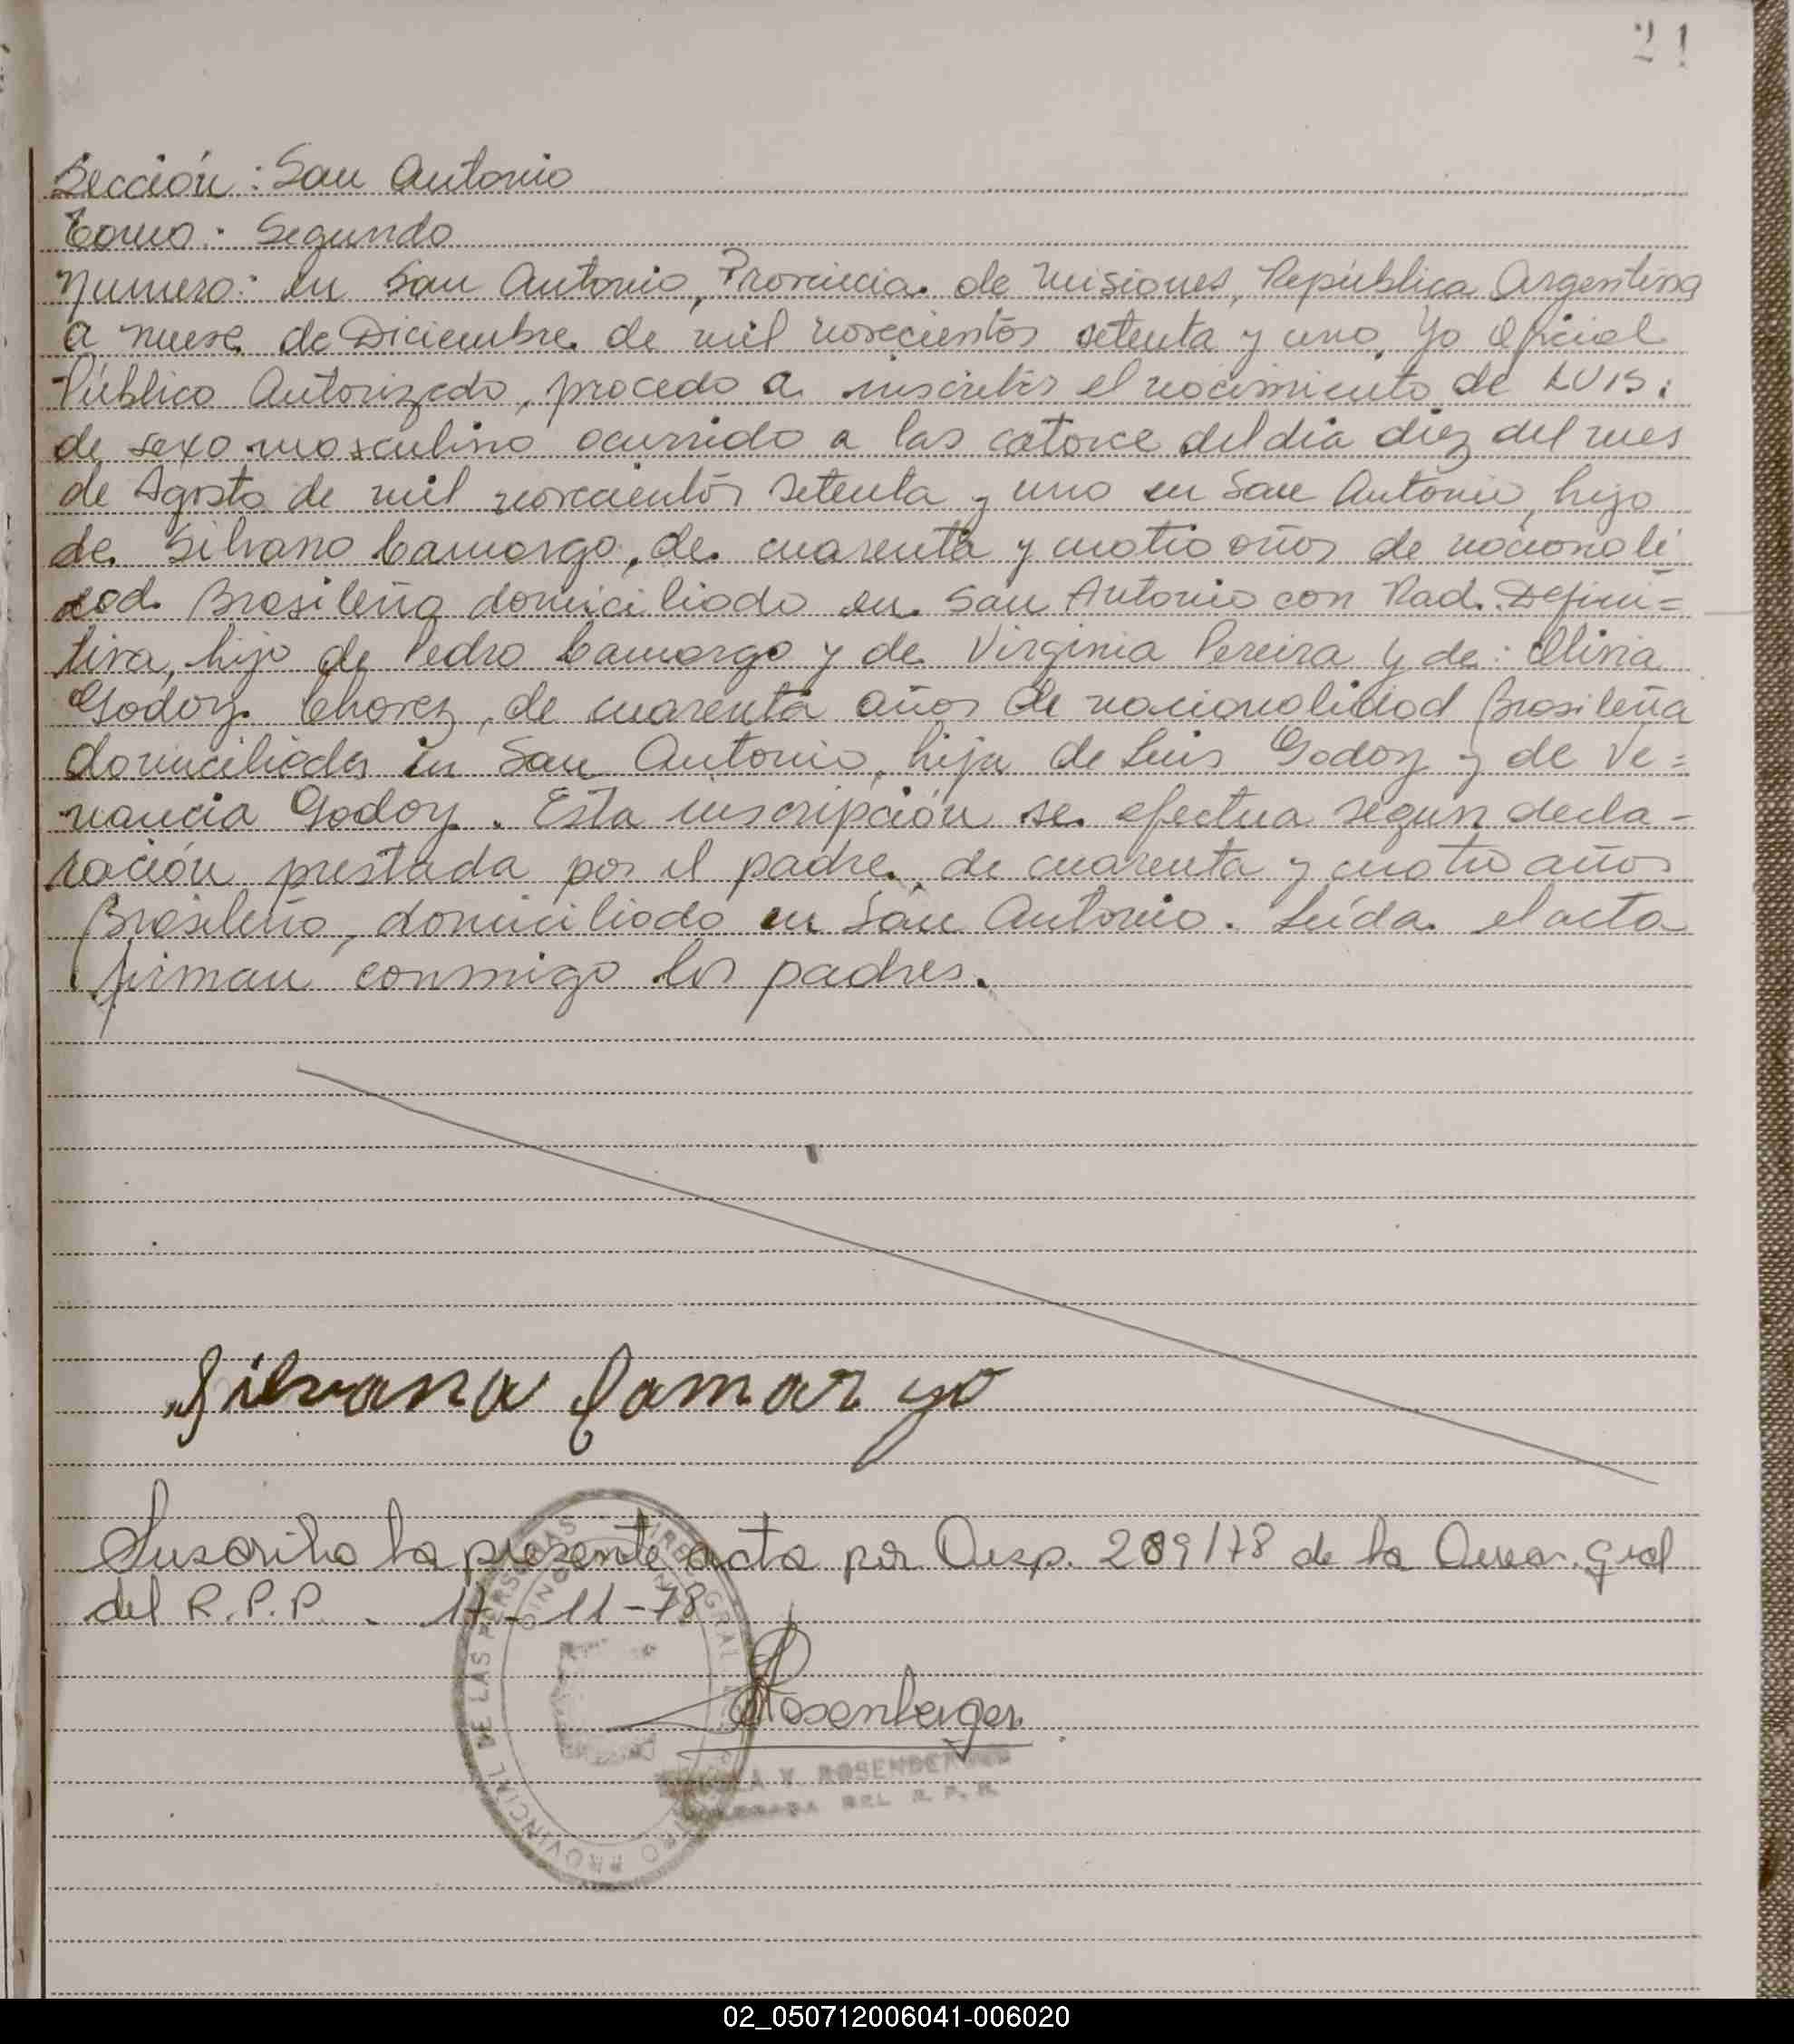 21
Sección: San Antonio
Tomo: Segundo
Numero: En San Antonio, Provincia de Misiones, República Argentina
a nueve de Diciembre de mil novecientos setenta y uno, Yo Oficial
Público Autorizado, procedo a inscribir el nacimiento de LUIS:
de sexo masculino ocurrido a las catorce del dia diez del mes
de Agosto de mil novecientos setenta y uno en San Antonio, hijo
de Silvano Camargo, de cuarenta y cuatro años de nacionali
dad Brasileña domiciliado en San Antonio con Rad. Defini=
tiva, hijo de Pedro Camargo y de Virginia Pereira y de: Olivia
Godoy Chavez, de cuarenta años de nacionalidad Brasileña
domiciliada en San Antonio, hija de Luis Godoy y de Ve=
nancia Godoy. Esta inscripción se efectua segun decla-
ración prestada por el padre de cuarenta y cuatro años
Brasileño, domiciliado en San Antonio. Leída el acta
firman conmigo los padres.
Silvana Camargo
Suscribo la presente acta por Disp. 289/78 de la Gral
del R.P.P. 17-11-78
Rosenberger
ROSENBERGER
DEL R. P. P.
REGISTRO PROVINCIAL DE LAS PERSONAS
02_050712006041-006020